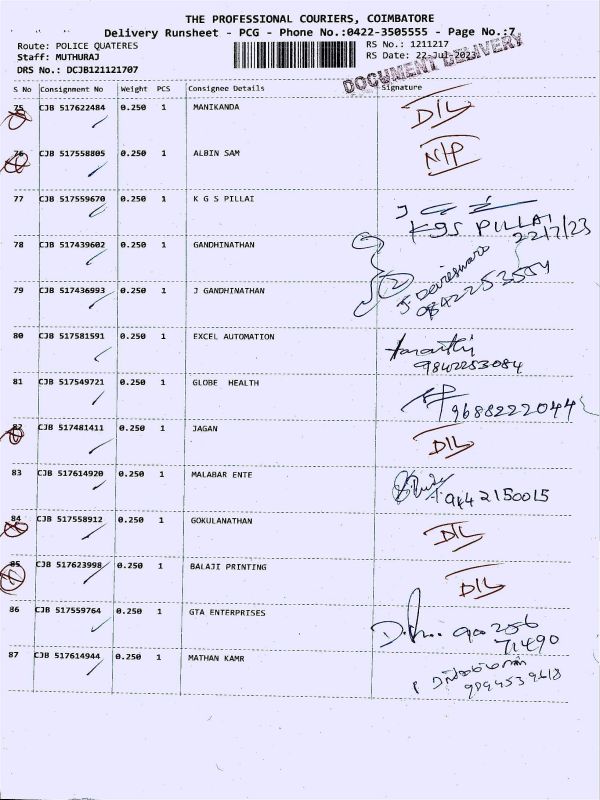 THE PROFESSIONAL COURIERS, COIMBATORE
Delivery Runsheet - PCG - Phone No.:0422-3505555 - Page No.:7
Route: POLICE QUATERES RS No.: 1211217
Staff: MUTHURAJ RS Date: 22-Jul-2023
DRS No.: DCJB121121707
DOCUMENT DELIVERY
S No Consignment No Weight PCS Consignee Details Signature
75 CJB 517622484 0.250 1 MANIKANDA D/L
76 CJB 517558805 0.250 1 ALBIN SAM N/P
77 CJB 517559670 0.250 1 K G S PILLAI
KGS PILLAI
22/7/23
78 CJB 517439602 0.250 1 GANDHINATHAN
79 CJB 517436993 0.250 1 J GANDHINATHAN 2
80 CJB 517581591 0.250 1 EXCEL AUTOMATION
9842253084
81 CJB 517549721 0.250 1 GLOBE HEALTH
9688222044
82 CJB 517481411 0.250 1 JAGAN D/L
83 CJB 517614920 0.250 1 MALABAR ENTE
9442150015
84 CJB 517558912 0.250 1 GOKULANATHAN D/L
85 CJB 517623998 0.250 1 BALAJI PRINTING D/L
86 CJB 517559764 0.250 1 GTA ENTERPRISES
900256
71490
87 CJB 517614944 0.250 1 MATHAN KAMR
9894539618